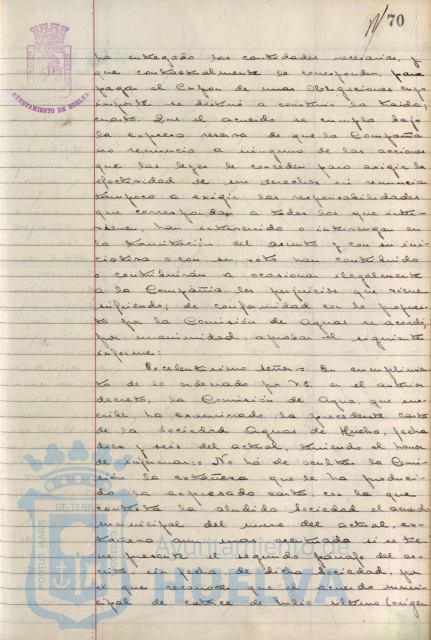 70
AYUNTAMIENTO DE HUELVA
ha entregado las cantidades necesarias, y
que contractualmente le corresponden, para
pagar el Cupon de unas Obligaciones cuyo
importe se destinó a construir la traida;
cuarto. Que el acuerdo se cumpla bajo
la expresa reserva de que la Compañia
no renuncia a ninguna de las acciones
que las leyes le conceden para exigir la
efectividad de sus derechos ni renuncia
tampoco a exigir las responsabilidades
que correspondan a todos los que inter-
vienen, han intervenido o intervengan en
la tramitación del asunto y con su ini-
ciativa o con su voto han contribuido
o contribuirán a ocasionar ilegalmente
a la Compañia los perjuicios que viene
sufriendo; de conformidad con lo propues-
to por la Comisión de Aguas se acordó,
por unanimidad, aprobar el siguiente
informe:
Excelentisimo señor: En cumplimien-
to de lo ordenado por V.E. en el anterior
decreto, la Comisión de Agua, que sus-
cribe, ha examinado la precedente carta
de la Sociedad Aguas de Huelva, fecha
diez y seis del actual, teniendo el honor
de informar: No há de ocultar la Comi-
sión la extrañeza que le ha produci-
do la expresada carta, con la que
contesta la aludida Sociedad el acuerdo
municipal del nueve del actual, ex-
trañeza aun mas acentuada si se tie-
ne presente el segundo párrafo del es-
crito de dicha Sociedad, por
el que reconoce que el acuerdo muni-
cipal de catorce de Julio último (origen
PORTUS MARIS ET TERRAE
Ayuntamiento de
HUELVA